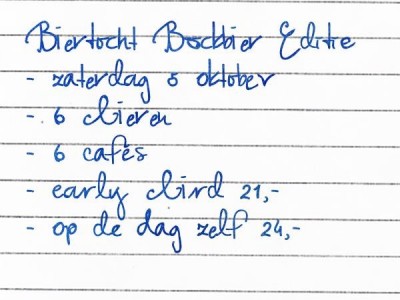 Biertocht Bockbier Editie
- zaterdag 5 oktober
- 6 bieren
- 6 cafés
- early bird 21,-
- op de dag zelf 24,-